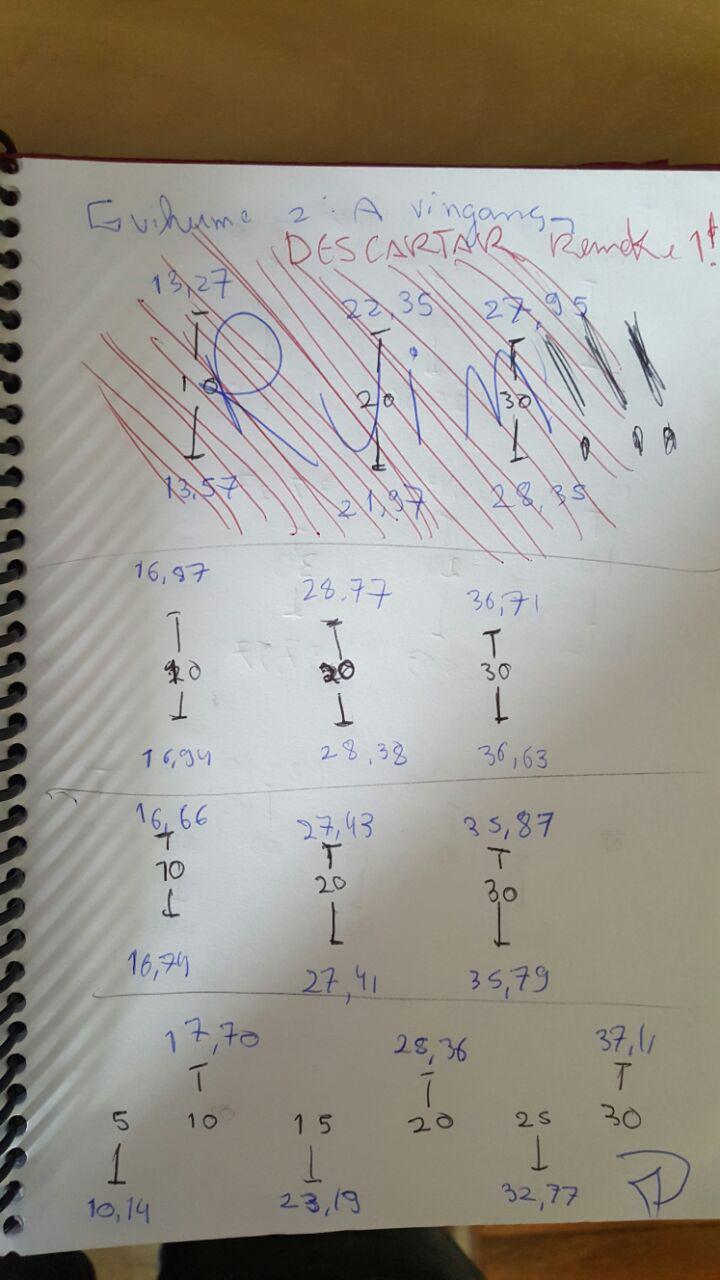 Guihume 2: A vingang
DESCARTAR Remake 1!
13,27 22,35 27,95
10 20 30
Ruim!!!
13,57 21,97 28,35
16,97 28.77 36,71
10 20 30
16,94 28,38 36,63
16,66 27,43 35,87
10 20 30
16,74 27,41 35,79
17,70 28,36 37,11
5 10 15 20 25 30
10,14 23,19 32,77